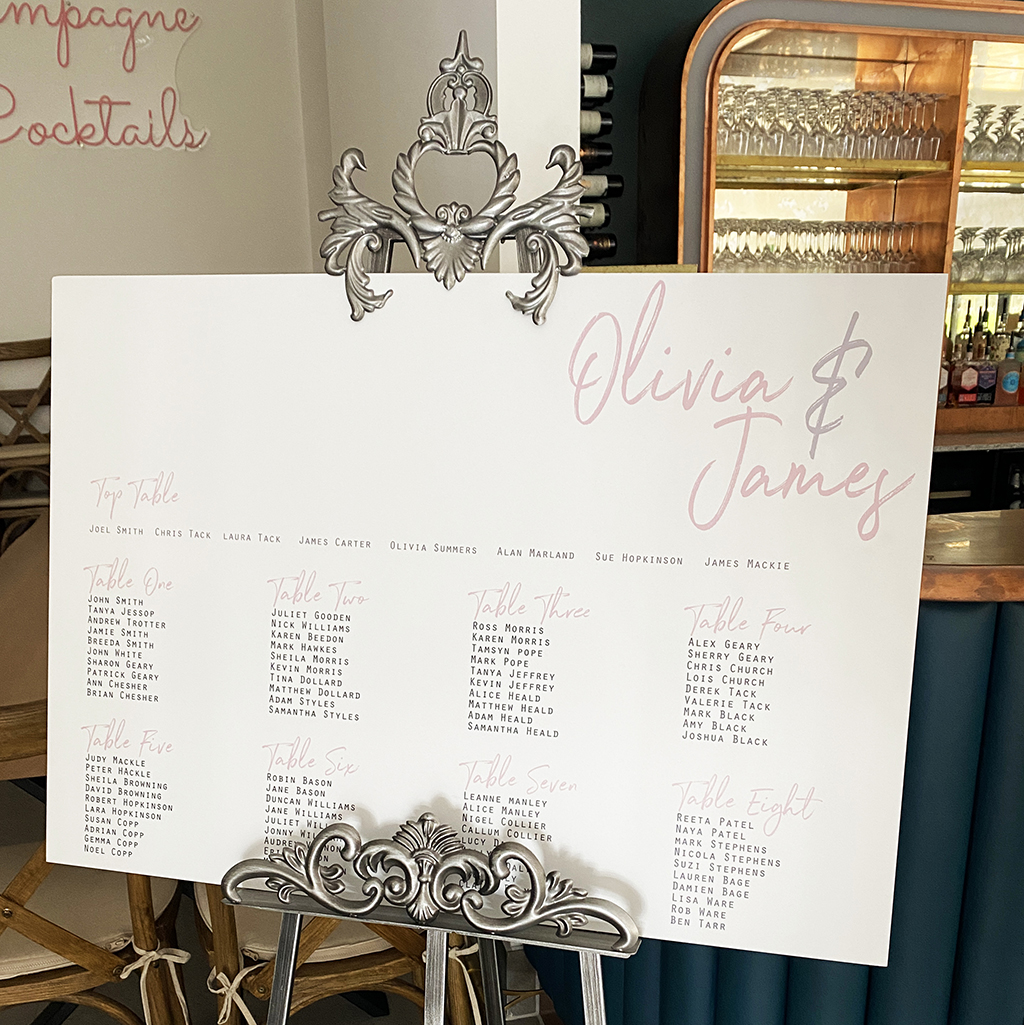 Cocktails
Olivia &
James
Top Table
Joel Smith Chris Tack Laura Tack James Carter Olivia Summers Alan Marland Sue Hopkinson James Mackie
Table One
John Smith
Tanya Jessop
Andrew Trotter
Jamie Smith
Breeda Smith
John White
Sharon Geary
Patrick Geary
Ann Chesher
Brian Chesher
Table Two
Juliet Gooden
Nick Williams
Karen Beedon
Mark Hawkes
Sheila Morris
Kevin Morris
Tina Dollard
Matthew Dollard
Adam Styles
Samantha Styles
Table Three
Ross Morris
Karen Morris
Tamsyn pope
Mark Pope
Tanya Jeffrey
Kevin Jeffrey
Alice Heald
Matthew Heald
Adam Heald
Samantha Heald
Table Four
Alex Geary
Sherry Geary
Chris Church
Lois Church
Derek Tack
Valerie Tack
Mark Black
Amy Black
Joshua Black
Table Five
Judy Mackle
Peter HAckle
Sheila Browning
David Browning
Robert Hopkinson
Lara Hopkinson
Susan Copp
Adrian Copp
Gemma Copp
Noel Copp
Table Six
Robin Bason
Jane Bason
Duncan Williams
Jane Williams
Juliet
Jonny
Table Seven
Leanne manley
Alice Manley
Nigel Collier
Callum Collier
Lucy
Table Eight
Reeta Patel
Naya Patel
mark Stephens
Nicola Stephens
Suzi Stephens
Lauren Bage
Damien Bage
Lisa Ware
Rob Ware
Ben Tarr